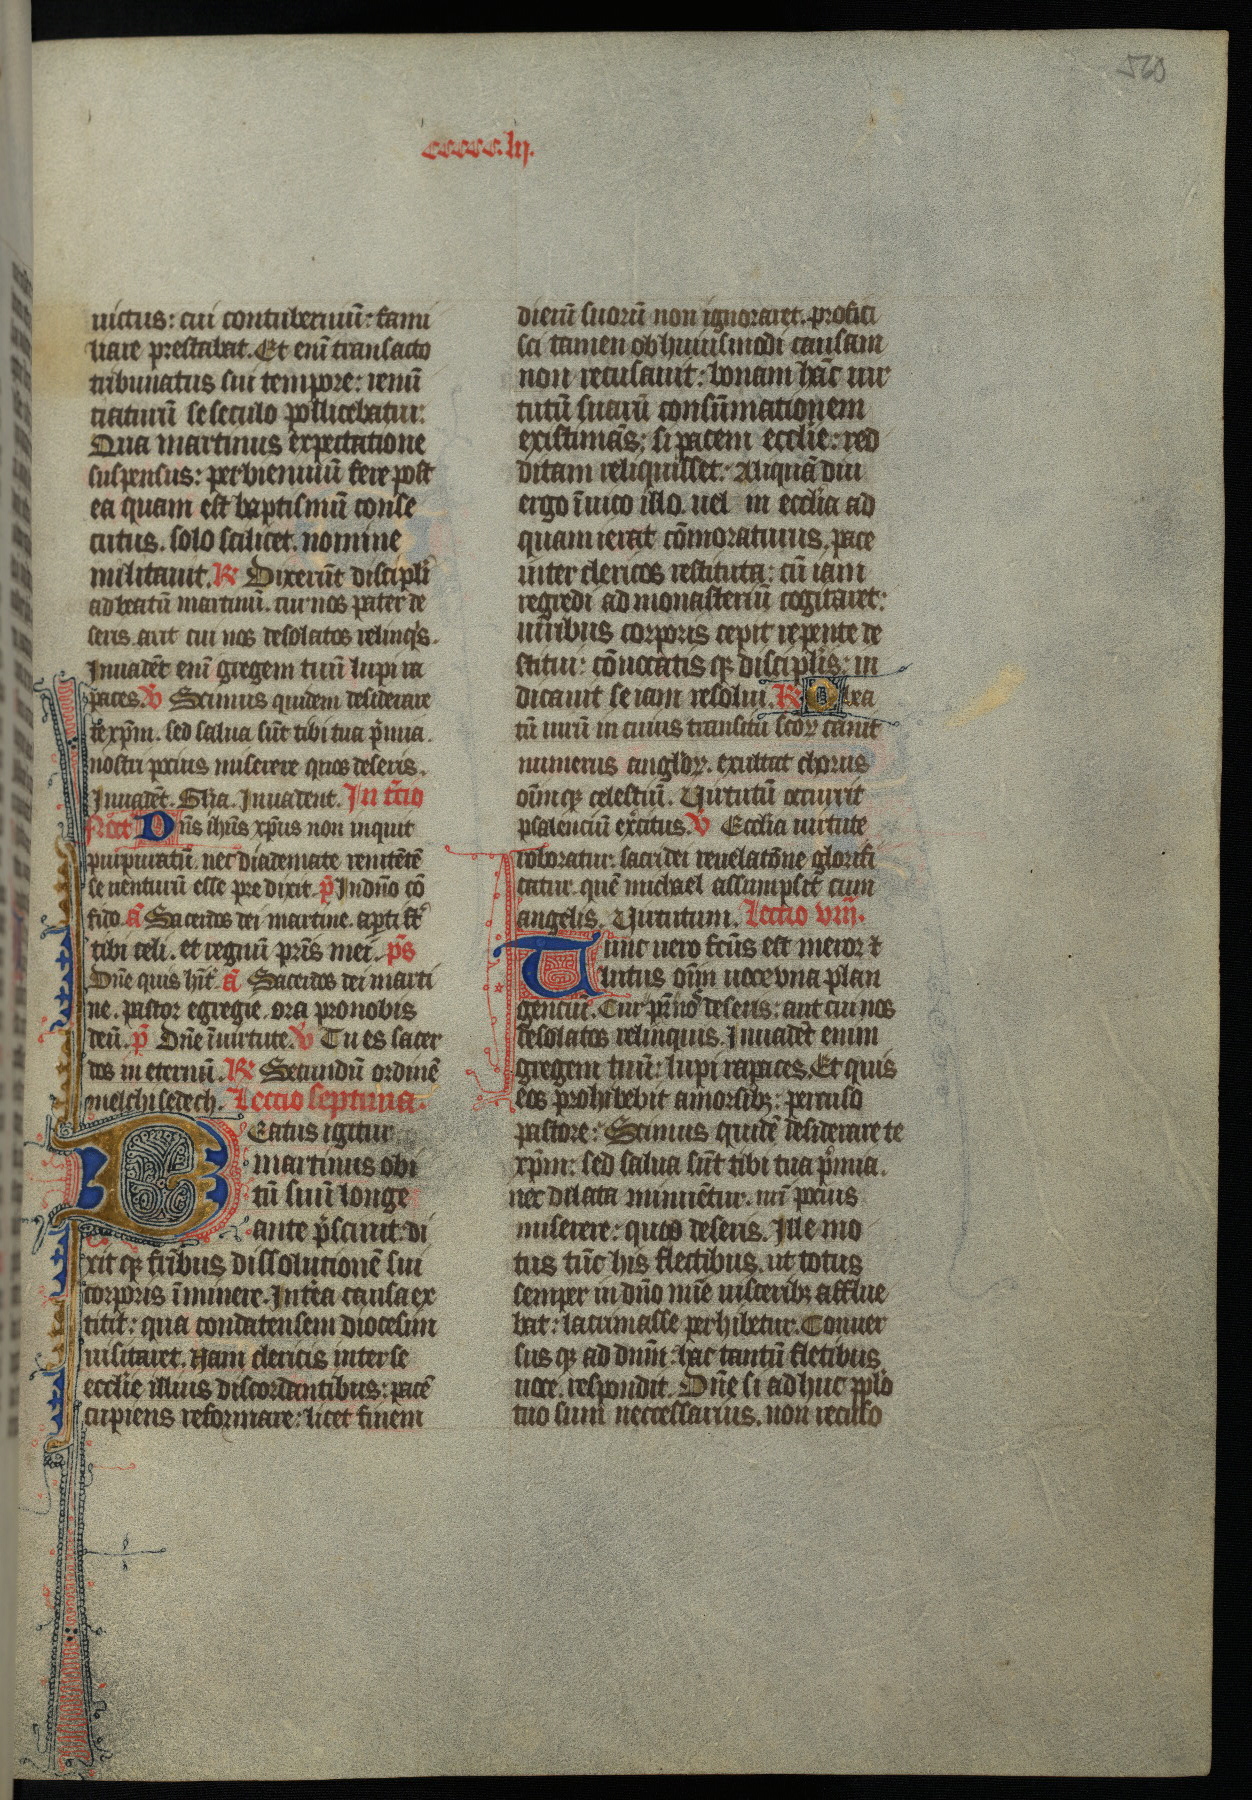 560
ccccc.lij.
uictus: cui contuberniū: fami
liare prestabat. Et enī transacto
tribunatus sui tempore: renū
tiaturū se seculo pollicebatur.
Qua martinus expectatione
suspensus: per bienniū fere post
ea quam est baptismū conse
cutus. solo scilicet. nomine
militauit. R Dixerūt discipli
ad beatū martinū. cur nos pater de
seris. aut cui nos desolatos relinq̄s.
Inuadēt enī gregem tuū lupi ra
paces. V Scimus quidem desiderare
te xp̄m. sed salua sūt tibi tua p̄mia.
nostri pocius miserere quos deseris.
Inuadēt. Gl̄ia. Inuadent. In t̄cio
Noct̄ Dn̄s ih̄us xp̄us non inquit
purpuratū. nec diademate renitētē
se uenturū esse predixit. p̄ In dn̄o cō
fido. ā Sacerdos dei martine. apti st̄
tibi celi. et regnū pr̄is mei. p̄s
Dn̄e quis hīt. ā Sacerdos dei marti
ne. pastor egregie. ora pro nobis
deū. p̄ Dn̄e ī uirtute. V Tu es sacer
dos in eternū. R Secundū ordinē
melchisedech. Lectio septima.
Beatus igitur
martinus obi
tū suū longe
ante p̄sciuit: di
xit qȝ fr̄ibus dissolutionē sui
corporis īminere. Int̄ea causa ex
titit: qua condatensem diocesim
uisitaret. Nam clericis inter se
ecclīe illius discordantibus: pacē
cupiens reformare: licet finem
dierū suorū non ignoraret. profici
sci tamen ob huiusmodi causam
non recusauit: bonam hāc uir
tutū suarū consūmationem
existimās: si pacem ecclīe: red
ditam reliquisset. Aliquā diu
ergo ī uico illo. uel in ecclīa ad
quam ierat cōmoraturus. pace
inter clericos restituta: cū iam
regredi ad monasteriū cogitaret:
uiribus corporis cepit repente de
stitui: cōuocatis qȝ discipl̄is: in
dicauit se iam resolui. R Bea
tū uirū in cuius transitu sc̄oꝝ canit
numerus angl̄oꝝ. exultat chorus
oīm qȝ celestiū. Uirtutū occurrit
psalenciū ex̄citus. V Ecclīa uirtute
roboratur. sac̄ dei reuelatōne glorifi
catur. quē michael assumpsit cum
angelis. Uirtutum. Lectio viij.
Tunc uero fc̄us est meror ⁊
luctus oīm uoce vna plan
genciū. Cur pr̄ nos deseris: aut cui nos
desolatos relinquis. Inuadēt enim
gregem tuū: lupi rapaces. Et quis
eos prohibebit a morsibȝ: percuso
pastore: Scimus quidē desiderare te
xp̄m: sed salua sūt tibi tua p̄mia.
nec dilata minuētur. nr̄i pocius
miserere: quos deseris. Ille mo
tus tūc his flectibus. ut totus
semper in dn̄o mīe uisceribȝ afflue
bat: lacrimasse perhibetur. Conuer
sus qȝ ad dnm̄: hac tantū fletibus
uoce. respondit. Dn̄e si adhuc pplo
tuo sum neccessarius. non recuso